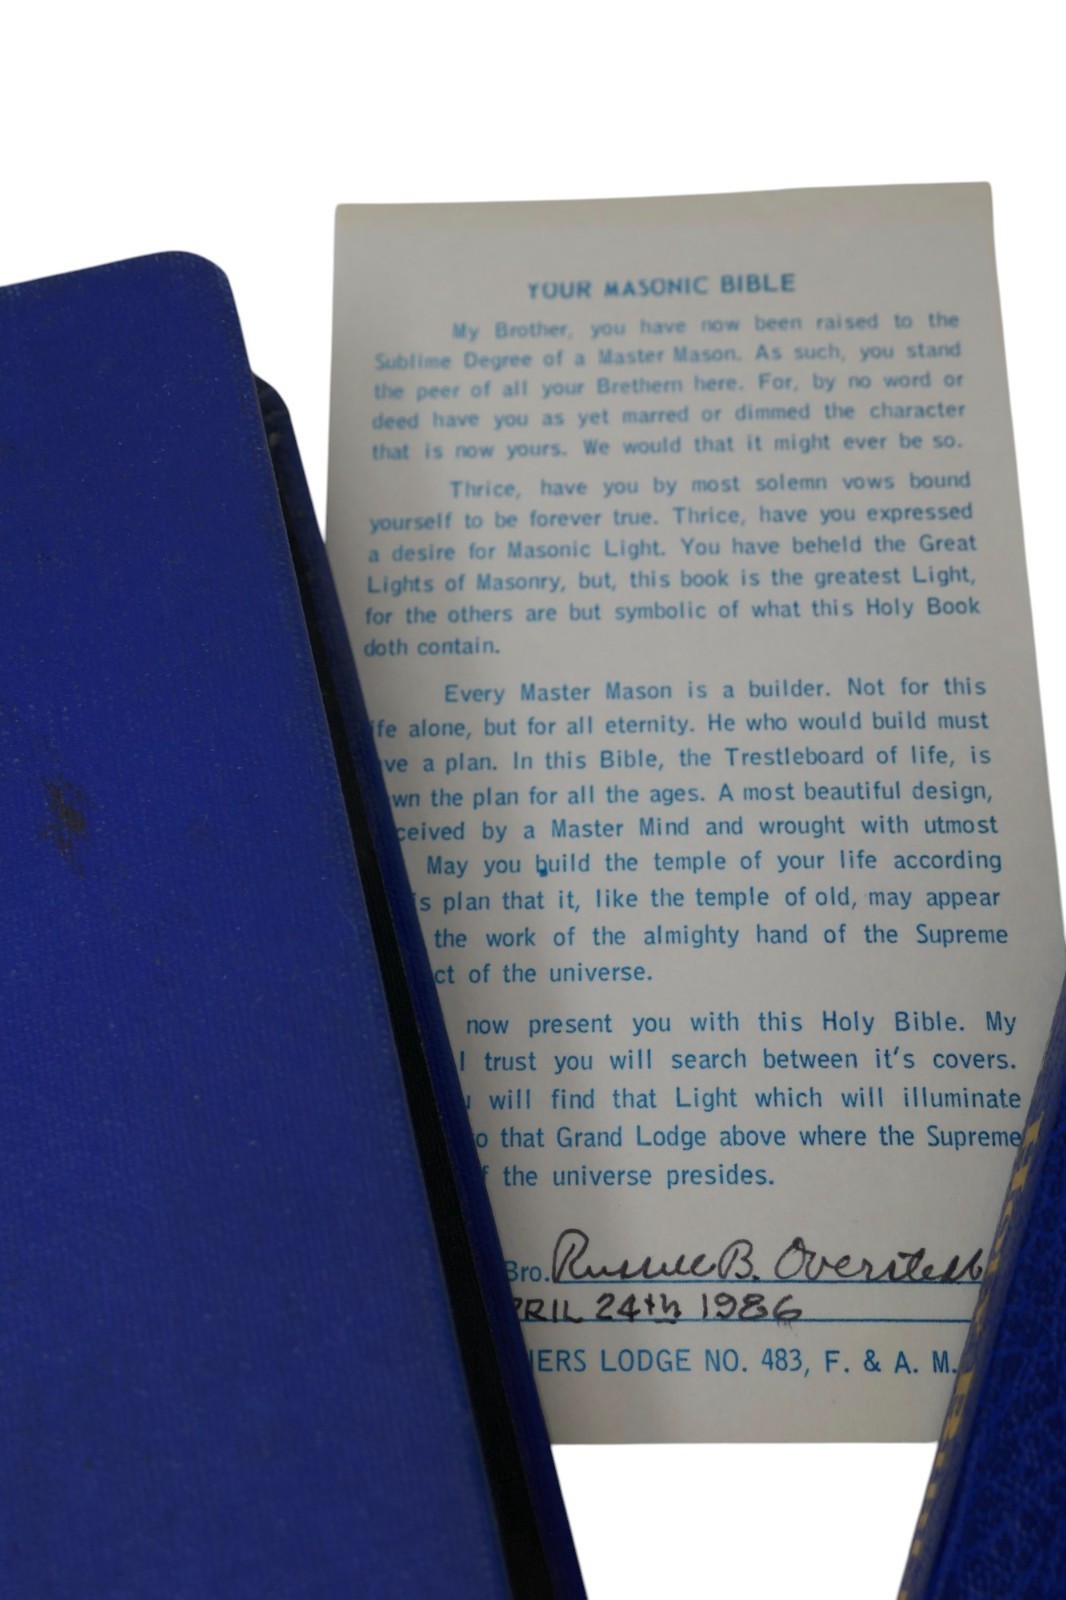 YOUR MASONIC BIBLE
My Brother, you have now been raised to the
Sublime Degree of a Master Mason. As such, you stand
the peer of all your Brethern here. For, by no word or
deed have you as yet marred or dimmed the character
that is now yours. We would that it might ever be so.
Thrice, have you by most solemn vows bound
yourself to be forever true. Thrice, have you expressed
a desire for Masonic Light. You have beheld the Great
Lights of Masonry, but, this book is the greatest Light,
for the others are but symbolic of what this Holy Book
doth contain.
Every Master Mason is a builder. Not for this
ife alone, but for all eternity. He who would build must
ve a plan. In this Bible, the Trestleboard of life, is
wn the plan for all the ages. A most beautiful design,
ceived by a Master Mind and wrought with utmost
May you build the temple of your life according
is plan that it, like the temple of old, may appear
the work of the almighty hand of the Supreme
ct of the universe.
now present you with this Holy Bible. My
I trust you will search between it's covers.
will find that Light which will illuminate
o that Grand Lodge above where the Supreme
f the universe presides.
Bro. Russell B. Overstell
PRIL 24th 1986
ERS LODGE NO. 483, F. & A. M.